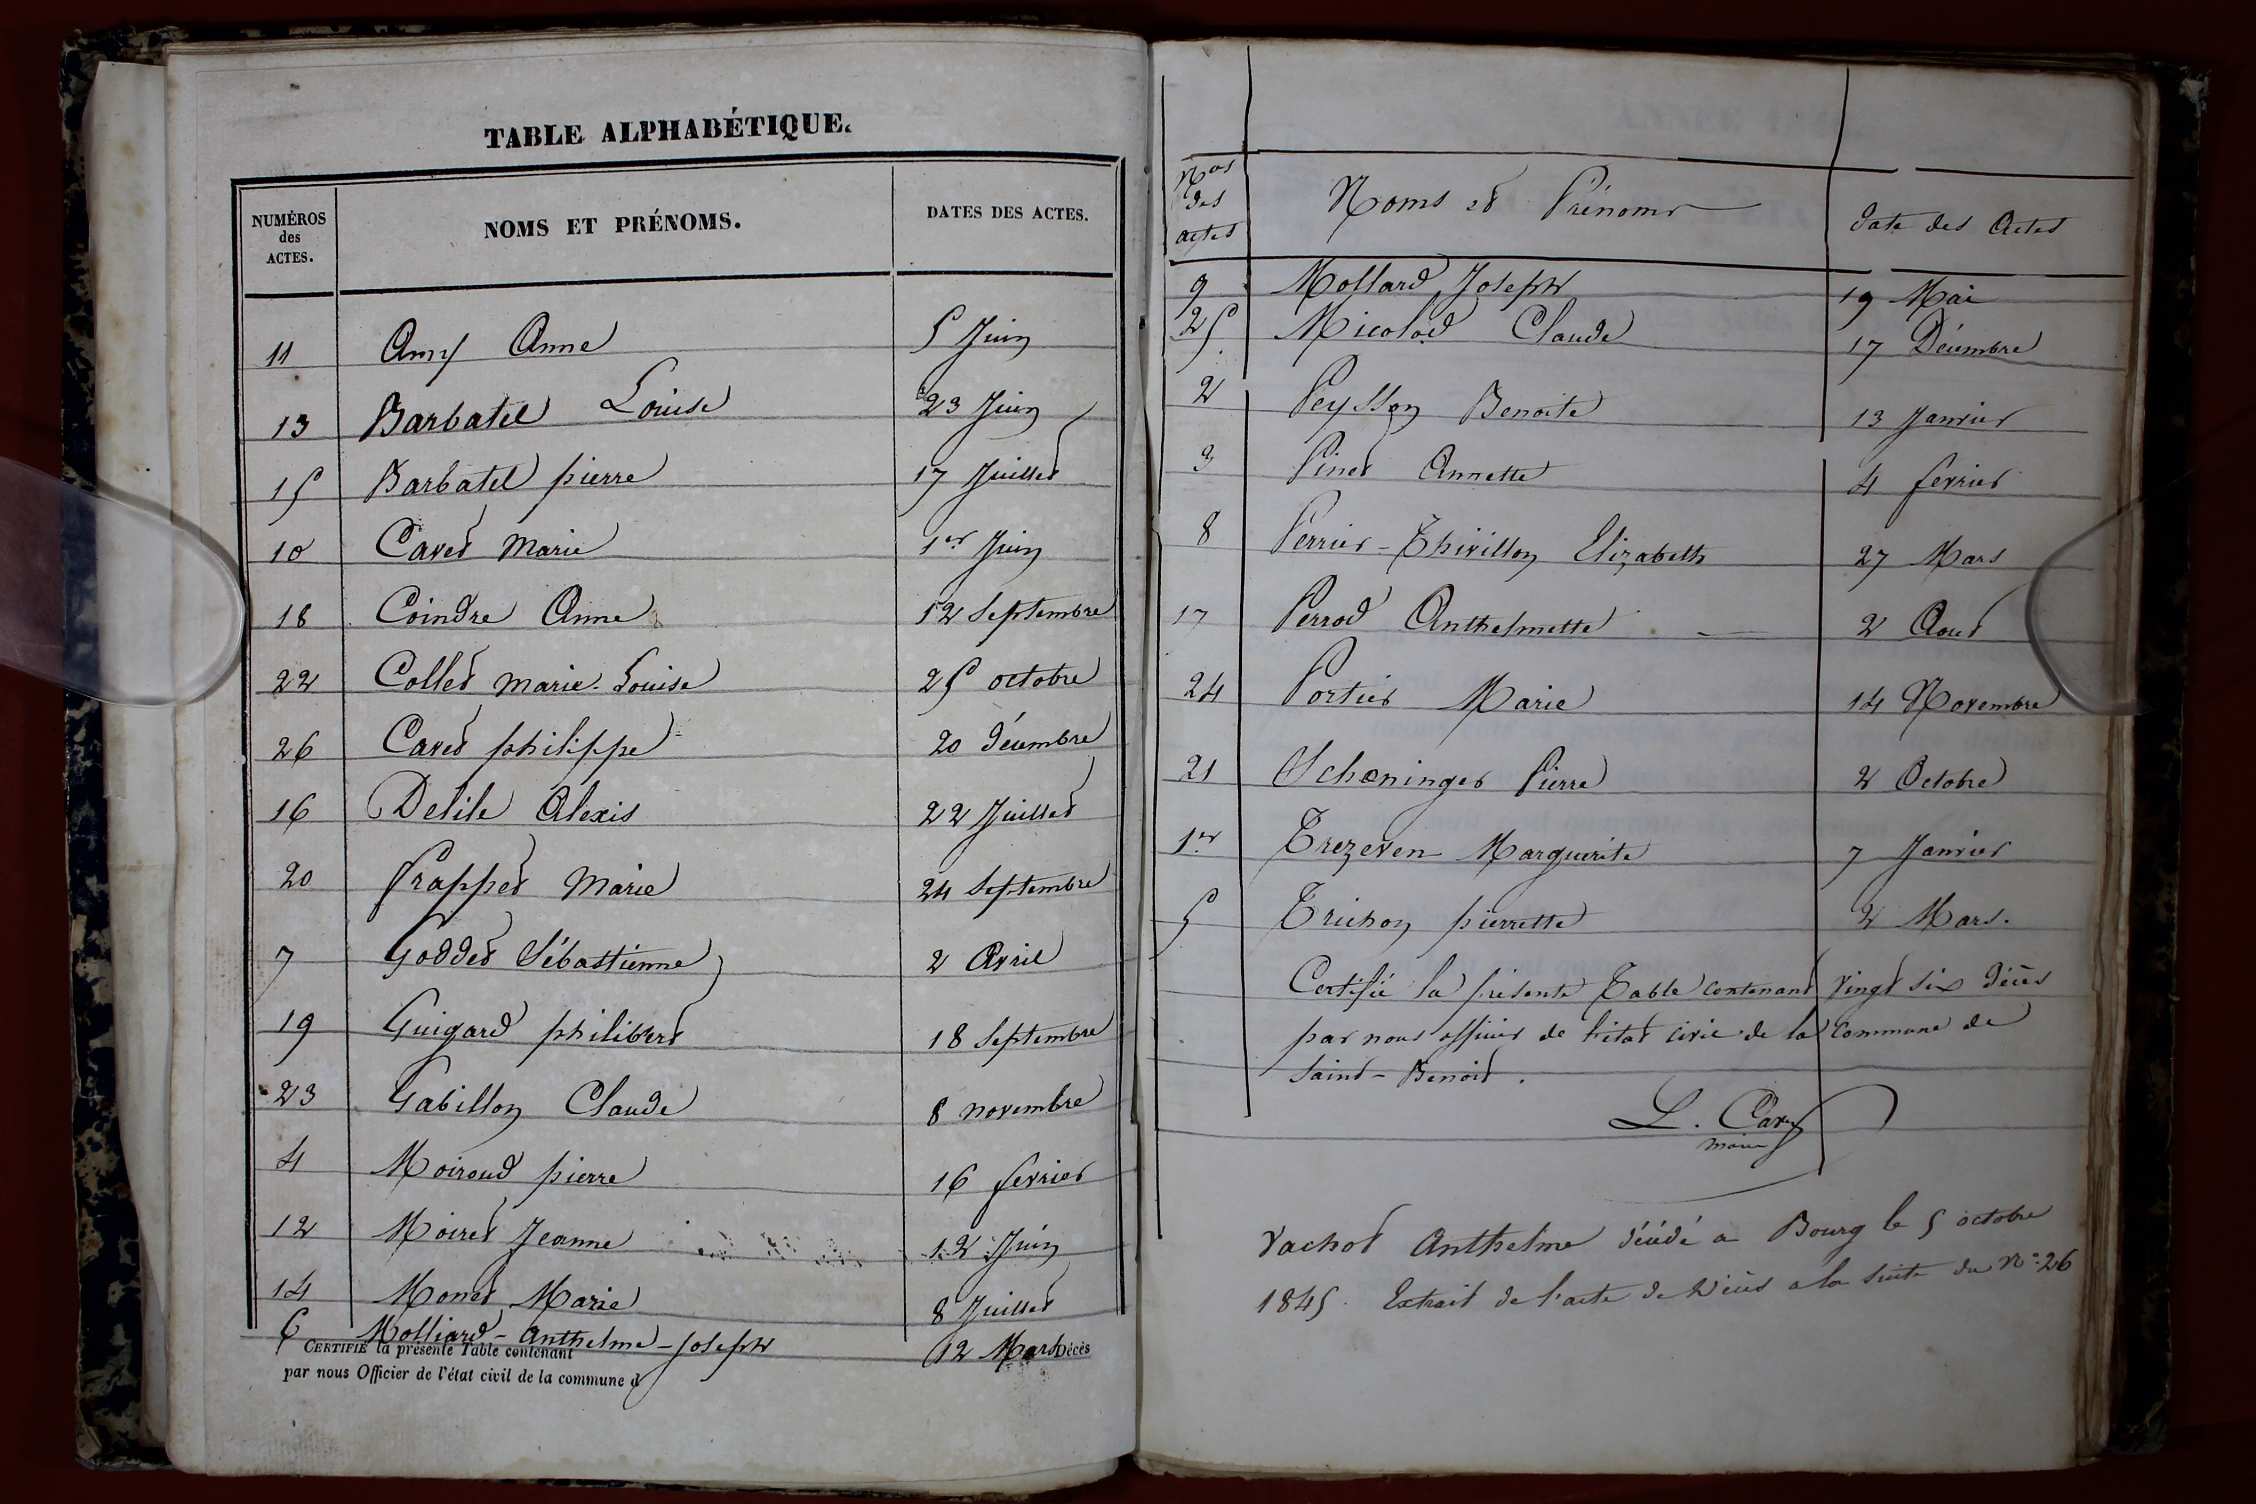 TABLE ALPHABÉTIQUE.
NUMÉROS des ACTES. NOMS ET PRÉNOMS. DATES DES ACTES.
11 Amy Anne 5 Juin
13 Barbatel Louise 23 Juin
15 Barbatel pierre 17 Juillet
10 Cavet Marie 1er Juin
18 Coindre Anne 12 Septembre
22 Collet Marie-Louise 25 octobre
26 Cavet philippe 20 décembre
16 Delile Alexis 22 Juillet
20 Frappet Marie 24 Septembre
7 Goddet Sébastienne 2 Avril
19 Guigard philibert 18 Septembre
23 Gabillon Claude 8 novembre
4 Moiroud pierre 16 fevrier
12 Moiret Jeanne 12 Juin
14 Monet Marie 8 Juillet
6 Molliard-Anthelme-Joseph 12 Mars
CERTIFIÉ la présente Table contenant Décès
par nous Officier de l'état civil de la commune d
Nos des actes Noms et Prénoms date des Actes
9 Mollard Joseph 19 Mai
25 Micolod Claude 17 Décembre
2 Peysson Benoite 13 Janvier
3 Pinet Annette 4 fevrier
8 Perrier-Thivillon Elizabeth 27 Mars
17 Perrod Anthelmette 2 Aout
24 Portier Marie 14 Novembre
21 Schoeninger Pierre 2 Octobre
1er Trezeven Marguerite 7 Janvier
5 Truchon pierrette 2 Mars.
Certifié la présente Table contenant vingt six décès
par nous officier de l'état civil de la commune de
Saint-Benoit.
L. Cavet
maire
Vachot Anthelme décédé a Bourg le 5 octobre
1845. Extrait de l'acte de décès a la suite du No 26